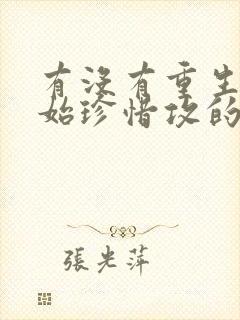 有没有重生
始珍惜攻的
張光萍